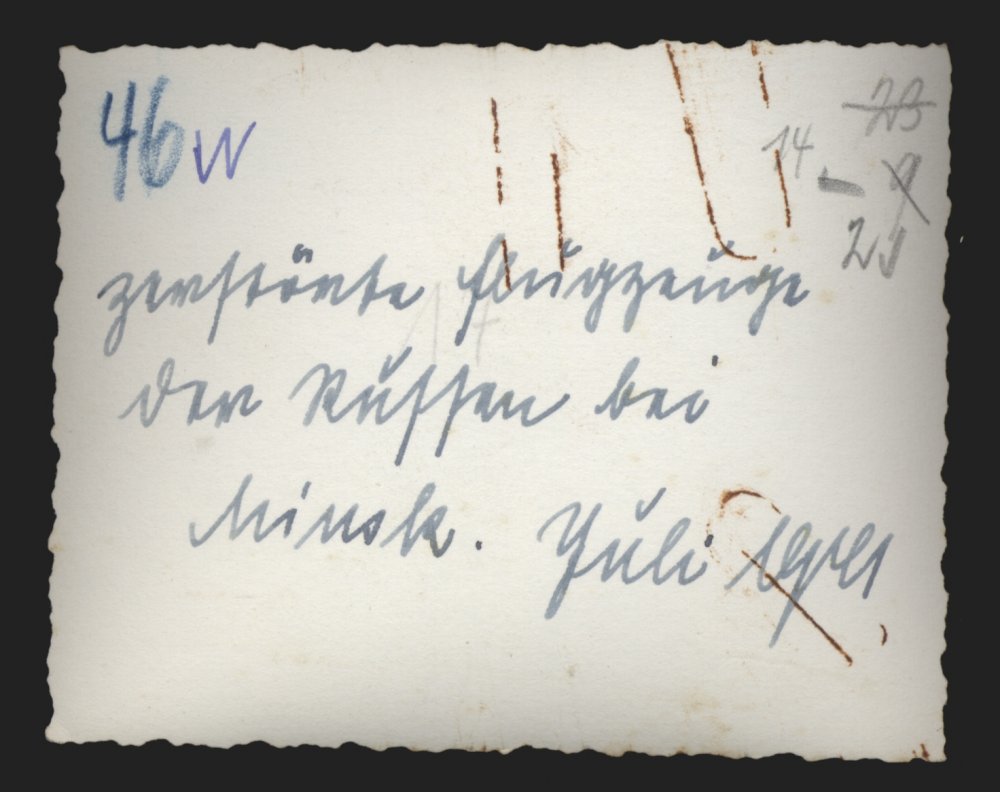 46 W
23
14 - 9
25
zerstörte Flugzeuge
17
der Russen bei
Minsk. Juli 1941